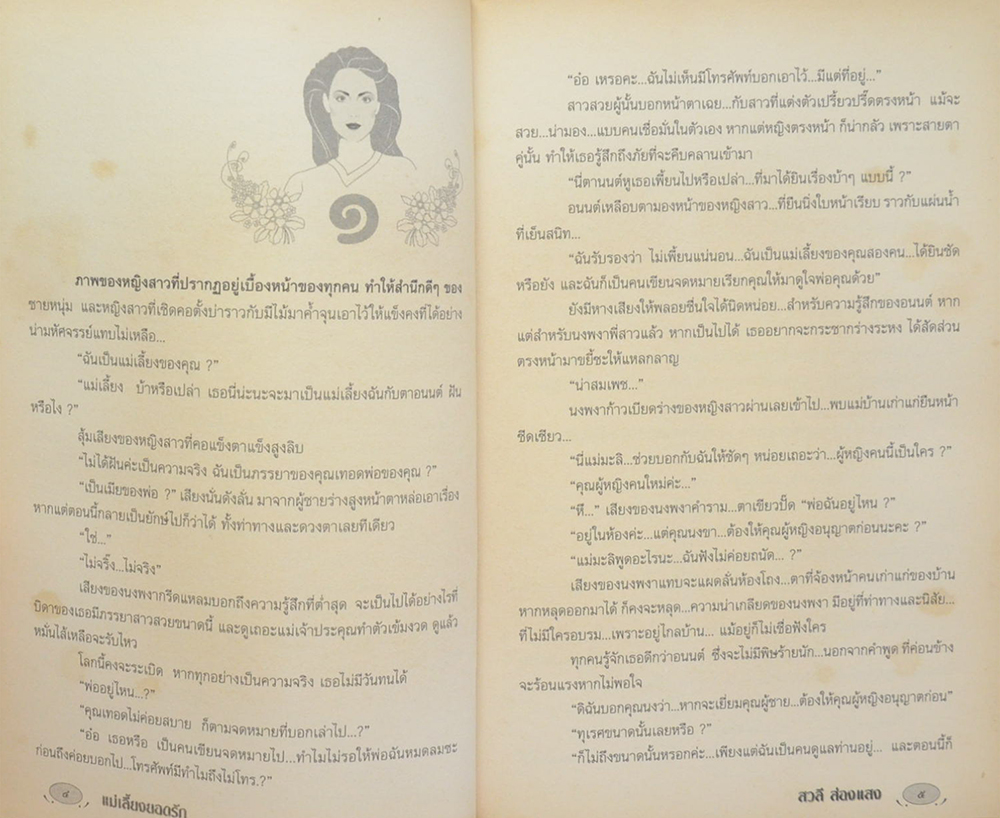 ๑
ภาพของหญิงสาวที่ปรากฏอยู่เบื้องหน้าของทุกคน ทำให้สำนึกดีๆ ของ
ชายหนุ่ม และหญิงสาวที่เชิดคอตั้งบ่าราวกับมีไม้มาค้ำจุนเอาไว้ให้แข็งคงที่ได้อย่าง
น่ามหัศจรรย์แทบไม่เหลือ...
“ฉันเป็นแม่เลี้ยงของคุณ ?”
“แม่เลี้ยง บ้าหรือเปล่า เธอนี่น่ะนะจะมาเป็นแม่เลี้ยงฉันกับตาอนนต์ ฝัน
หรือไง ?”
สุ้มเสียงของหญิงสาวที่คอแข็งตาแข็งสูงลิบ
“ไม่ได้ฝันค่ะเป็นความจริง ฉันเป็นภรรยาของคุณเทอดพ่อของคุณ ?”
“เป็นเมียของพ่อ ?” เสียงนั่นดังลั่น มาจากผู้ชายร่างสูงหน้าตาหล่อเอาเรื่อง
หากแต่ตอนนี้กลายเป็นยักษ์ไปก็ว่าได้ ทั้งท่าทางและดวงตาเลยทีเดียว
“ใช่...”
“ไม่จริ๊ง...ไม่จริง”
เสียงของนงพงากรีดแหลมบอกถึงความรู้สึกที่ต่ำสุด จะเป็นไปได้อย่างไรที่
บิดาของเธอมีภรรยาสาวสวยขนาดนี้ และดูเถอะแม่เจ้าประคุณทำตัวเข้มงวด ดูแล้ว
หมั่นไส้เหลือจะรับไหว
โลกนี้คงจะระเบิด หากทุกอย่างเป็นความจริง เธอไม่มีวันทนได้
“พ่ออยู่ไหน...?”
“คุณเทอดไม่ค่อยสบาย ก็ตามจดหมายที่บอกเล่าไป...?”
“อ๋อ เธอหรือ เป็นคนเขียนจดหมายไป...ทำไมไม่รอให้พ่อฉันหมดลมซะ
ก่อนถึงค่อยบอกไป...โทรศัพท์มีทำไมถึงไม่โทร.?”
๔
แม่เลี้ยงยอดรัก
“อ๋อ เหรอคะ...ฉันไม่เห็นมีโทรศัพท์บอกเอาไว้...มีแต่ที่อยู่...”
สาวสวยผู้นั้นบอกหน้าตาเฉย...กับสาวที่แต่งตัวเปรี้ยวปรี๊ดตรงหน้า แม้จะ
สวย...น่ามอง...แบบคนเชื่อมั่นในตัวเอง หากแต่หญิงตรงหน้า ก็น่ากลัว เพราะสายตา
คู่นั้น ทำให้เธอรู้สึกถึงภัยที่จะคืบคลานเข้ามา
“นี่ตานนต์หูเธอเพี้ยนไปหรือเปล่า...ที่มาได้ยินเรื่องบ้าๆ แบบนี้ ?”
อนนต์เหลือบตามองหน้าของหญิงสาว...ที่ยืนนิ่งใบหน้าเรียบ ราวกับแผ่นน้ำ
ที่เย็นสนิท...
“ฉันรับรองว่า ไม่เพี้ยนแน่นอน...ฉันเป็นแม่เลี้ยงของคุณสองคน...ได้ยินชัด
หรือยัง และฉันก็เป็นคนเขียนจดหมายเรียกคุณให้มาดูใจพ่อคุณด้วย”
ยังมีหางเสียงให้พลอยชื่นใจได้นิดหน่อย...สำหรับความรู้สึกของอนนต์ หาก
แต่สำหรับนงพงาพี่สาวแล้ว หากเป็นไปได้ เธออยากจะกระชากร่างระหง ได้สัดส่วน
ตรงหน้ามาขยี้ซะให้แหลกลาญ
“น่าสมเพช...”
นงพงาก้าวเบียดร่างของหญิงสาวผ่านเลยเข้าไป...พบแม่บ้านเก่าแก่ยืนหน้า
ซีดเซียว...
“นี่แม่มะลิ...ช่วยบอกกับฉันให้ชัดๆ หน่อยเถอะว่า...ผู้หญิงคนนี้เป็นใคร ?”
“คุณผู้หญิงคนใหม่ค่ะ...”
“หึ...” เสียงของนงพงาคำราม...ตาเขียวปั๊ด “พ่อฉันอยู่ไหน ?”
“อยู่ในห้องค่ะ...แต่คุณนงขา...ต้องให้คุณผู้หญิงอนุญาตก่อนนะคะ ?”
“แม่มะลิพูดอะไรนะ...ฉันฟังไม่ค่อยถนัด... ?”
เสียงของนงพงาแทบจะแผดลั่นห้องโถง...ตาที่จ้องหน้าคนเก่าแก่ของบ้าน
หากหลุดออกมาได้ ก็คงจะหลุด...ความน่าเกลียดของนงพงา มีอยู่ที่ท่าทางและนิสัย...
ที่ไม่มีใครอบรม...เพราะอยู่ไกลบ้าน... แม้อยู่ก็ไม่เชื่อฟังใคร
ทุกคนรู้จักเธอดีกว่าอนนต์ ซึ่งจะไม่มีพิษร้ายนัก...นอกจากคำพูด ที่ค่อนข้าง
จะร้อนแรงหากไม่พอใจ
“ดิฉันบอกคุณนงว่า...หากจะเยี่ยมคุณผู้ชาย...ต้องให้คุณผู้หญิงอนุญาตก่อน”
“ทุเรศขนาดนั้นเลยหรือ ?”
“ก็ไม่ถึงขนาดนั้นหรอกค่ะ...เพียงแต่ฉันเป็นคนดูแลท่านอยู่... และตอนนี้ก็
สวลี ส่องแสง
๕